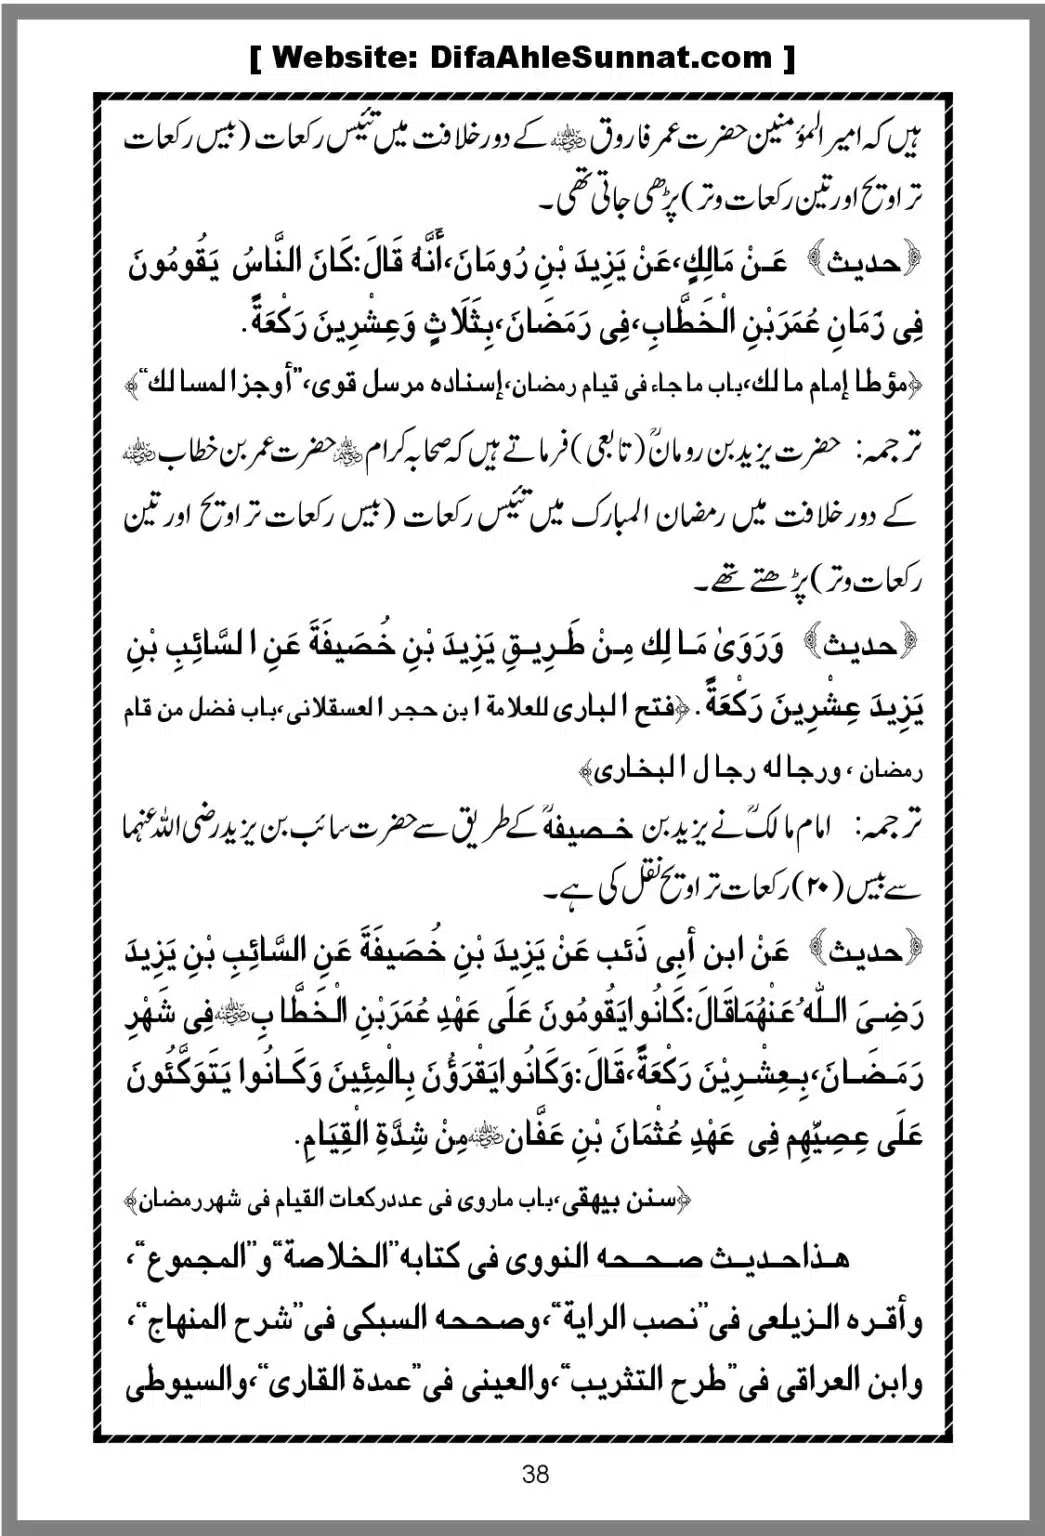 [ Website: DifaAhleSunnat.com ]
ہیں کہ امیر المؤمنین حضرت عمر فاروق رضی اللہ عنہ کے دور خلافت میں تئیس رکعات (بیس رکعات
تراویح اور تین رکعات وتر) پڑھی جاتی تھی۔
﴿حدیث﴾ عَنْ مَالِكٍ،عَنْ يَزِيدَ بْنِ رُومَانَ،أَنَّهُ قَالَ:كَانَ النَّاسُ يَقُومُونَ
فِى زَمَانِ عُمَرَبْنِ الْخَطَّابِ،فِى رَمَضَانَ،بِثَلَاثٍ وَعِشْرِينَ رَكْعَةً.
﴿مؤطا إمام مالك،باب ماجاء فى قيام رمضان،إسناده مرسل قوى،”أوجز المسالك“﴾
ترجمہ: حضرت یزید بن رومانؒ (تابعی) فرماتے ہیں کہ صحابہ کرام رضی اللہ عنہم حضرت عمر بن خطاب رضی اللہ عنہ
کے دور خلافت میں رمضان المبارک میں تئیس رکعات (بیس رکعات تراویح اور تین
رکعات وتر) پڑھتے تھے۔
﴿حدیث﴾ وَرَوَىٰ مَالِك مِنْ طَرِيقِ يَزِيدَ بْنِ خُصَيفَةَ عَنِ السَّائِبِ بْنِ
يَزِيدَ عِشْرِينَ رَكْعَةً. ﴿فتح البارى للعلامة ابن حجر العسقلانى،باب فضل من قام
رمضان ، ورجاله رجال البخارى﴾
ترجمہ: امام مالکؒ نے یزید بن خصیفہؒ کے طریق سے حضرت سائب بن یزید رضی اللہ عنہما
سے بیس (۲۰) رکعات تراویح نقل کی ہے۔
﴿حدیث﴾ عَنْ ابن أبى ذَئب عَنْ يَزِيدَ بْنِ خُصَيفَةَ عَنِ السَّائِبِ بْنِ يَزِيدَ
رَضِىَ اللّٰهُ عَنْهُمَاقَالَ:كَانُوايَقُومُونَ عَلَى عَهْدِ عُمَرَبْنِ الْخَطَّابِ رضی اللہ عنہ فِى شَهْرِ
رَمَضَانَ،بِعِشْرِيْنَ رَكْعَةً،قَالَ:وَكَانُوايَقْرَؤُنَ بِالْمِئِينَ وَكَانُوا يَتَوَكَّئُونَ
عَلَى عِصِيِّهِم فِى عَهْدِ عُثْمَانَ بْنِ عَفَّان رضی اللہ عنہ مِنْ شِدَّةِ الْقِيَامِ.
﴿سنن بيهقى،باب ماروى فى عددركعات القيام فى شهررمضان﴾
هذاحديث صححه النووى فى كتابه”الخلاصة“و”المجموع“،
وأقره الزيلعى فى”نصب الراية“،وصححه السبكى فى”شرح المنهاج“،
وابن العراقى فى”طرح التثريب“،والعينى فى”عمدة القارى“،والسيوطى
38